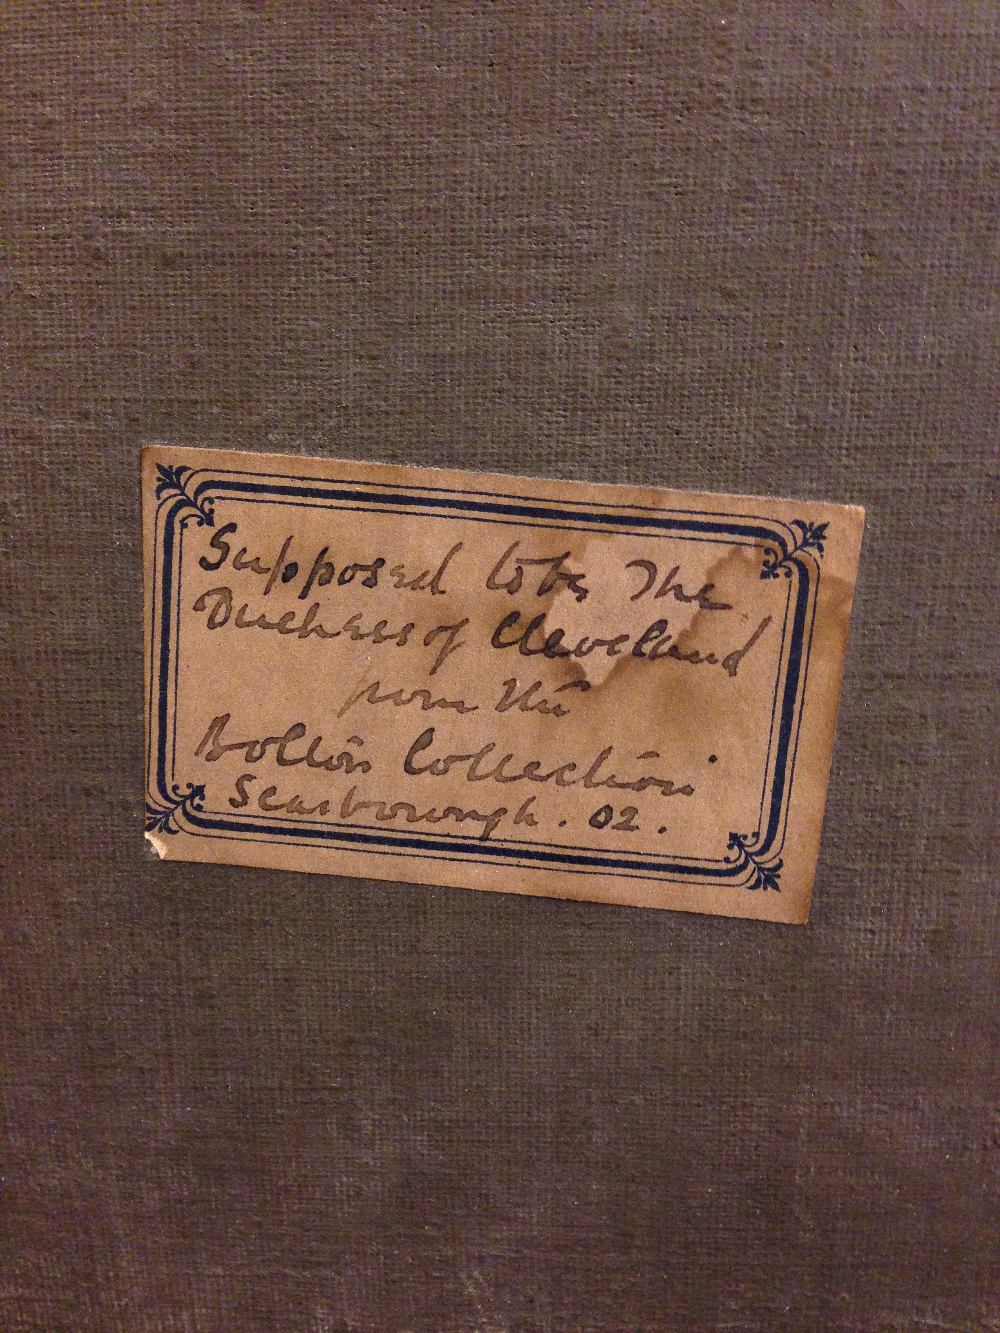 Supposed to be The
Duchess of Cleveland
from the
Bolton Collection
Scarborough. 02.